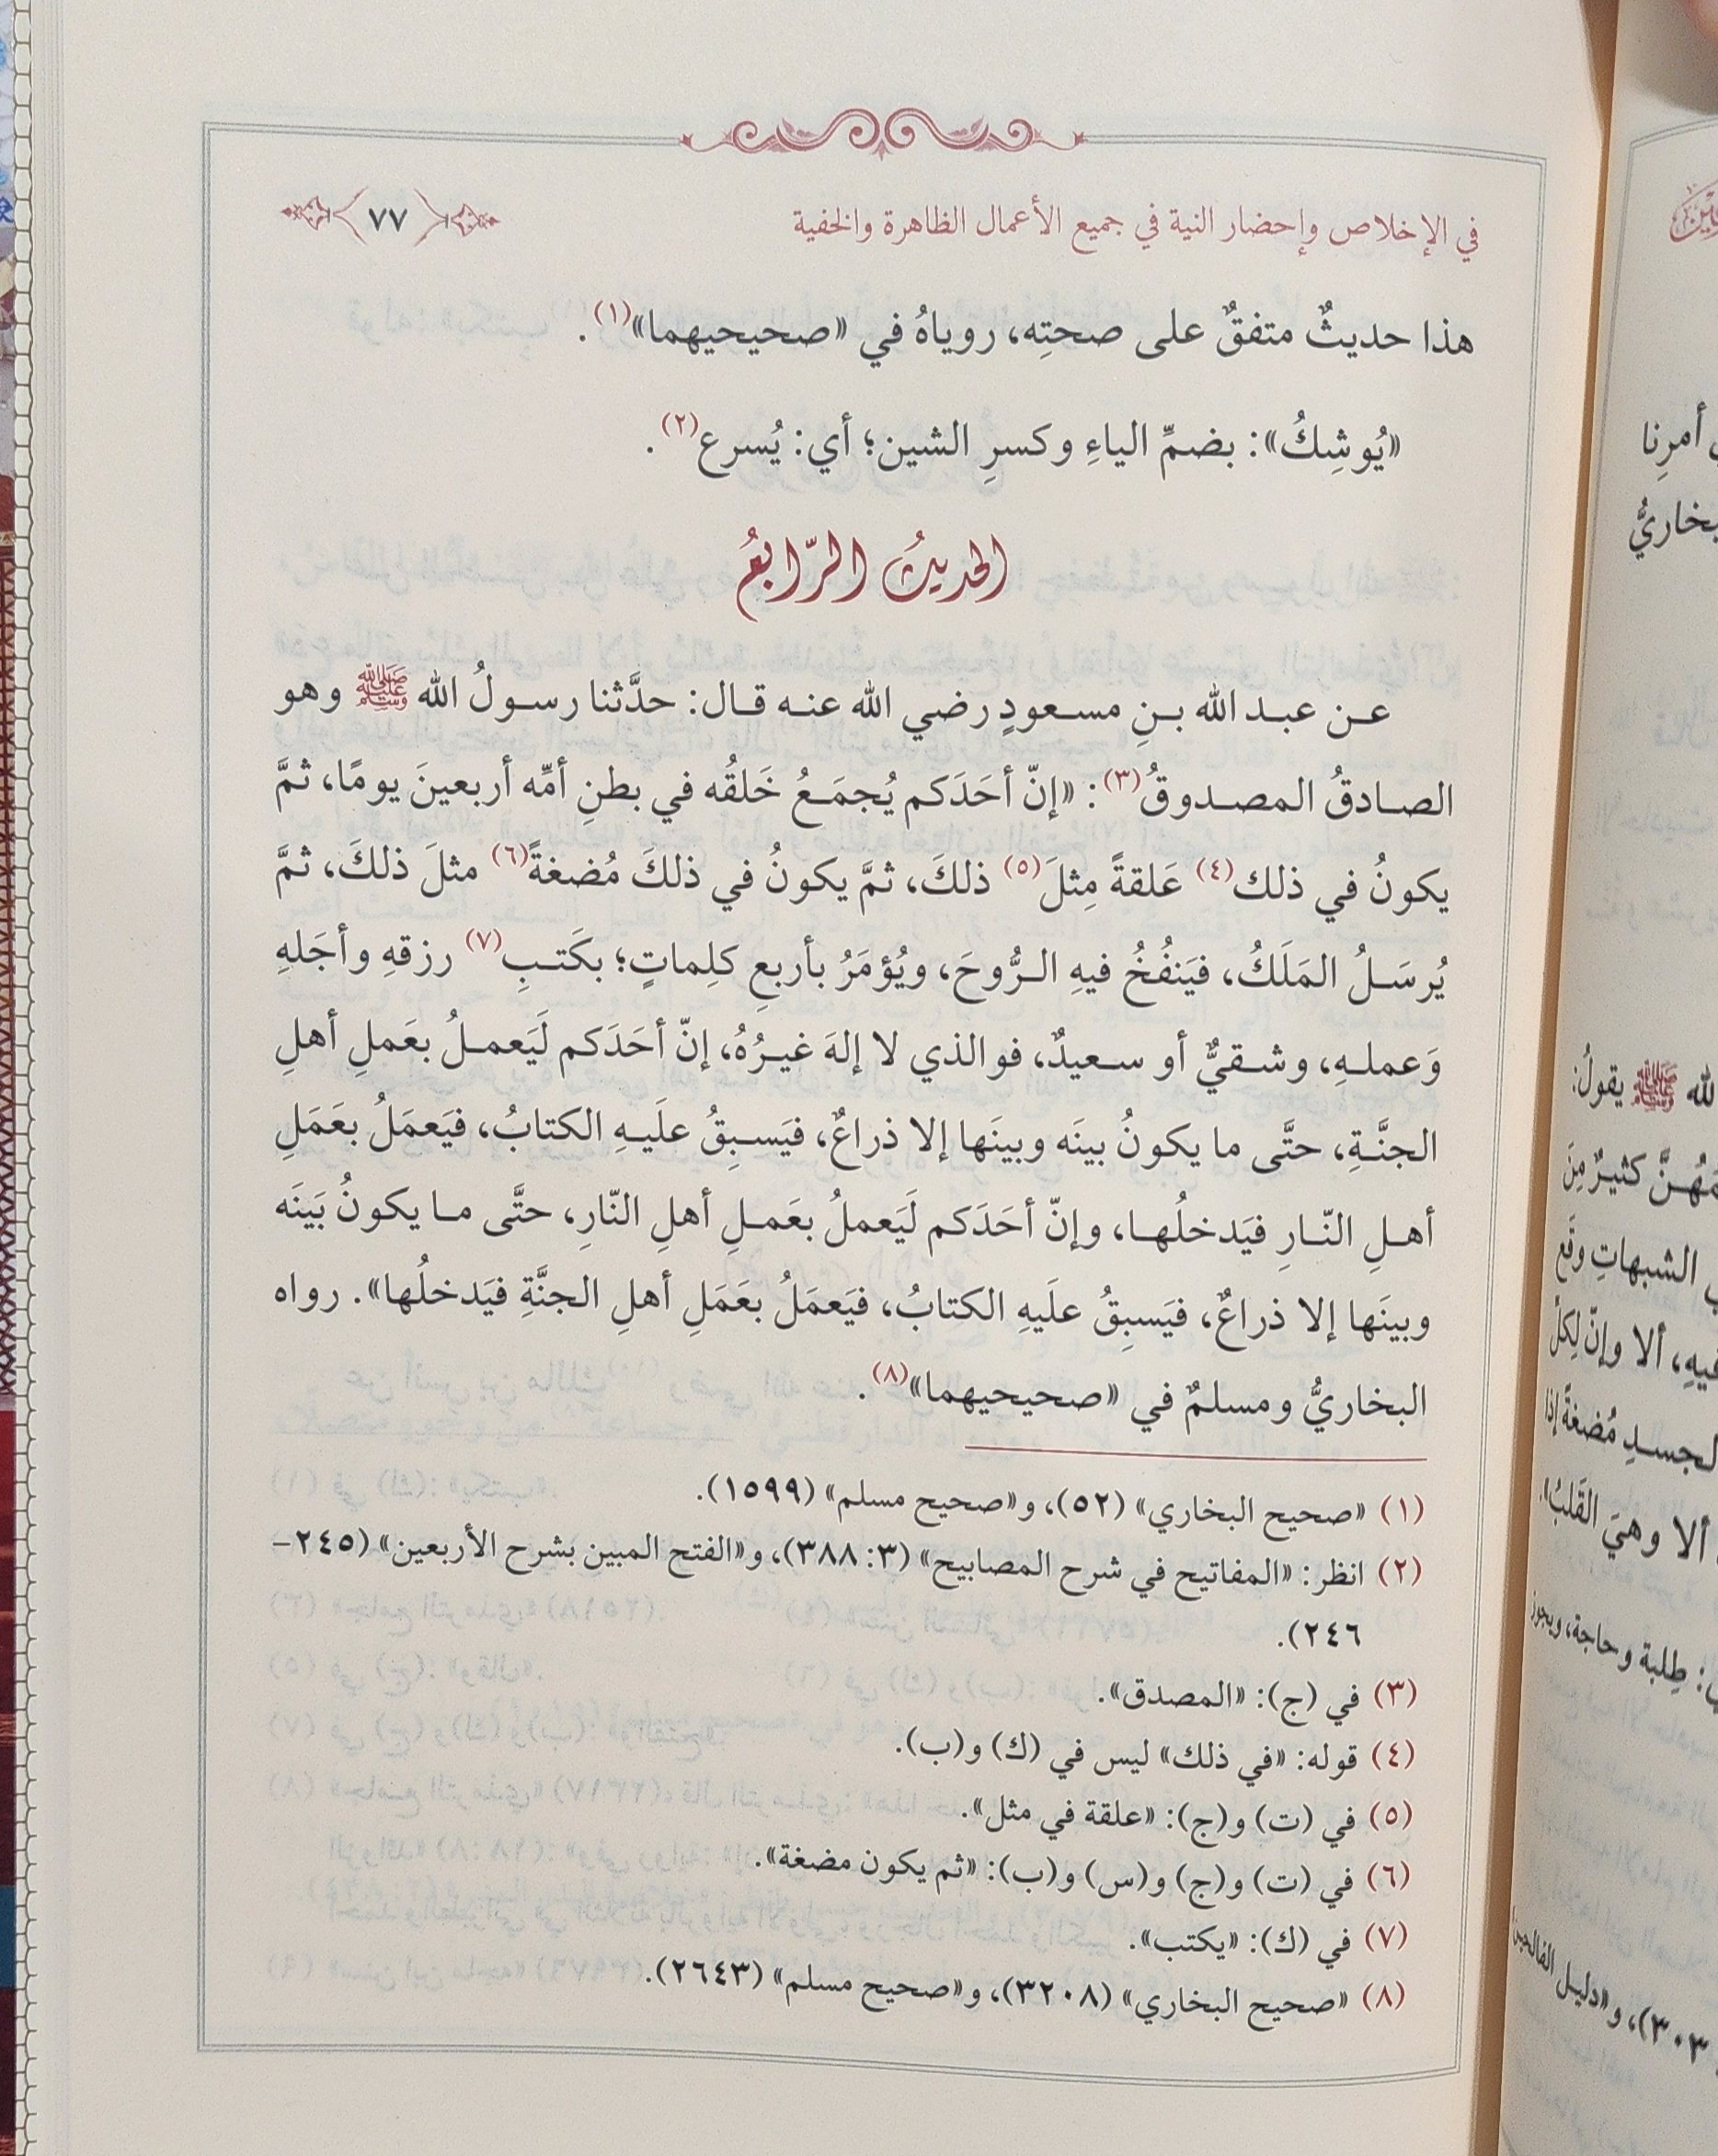 في الإخلاص وإحضار النية في جميع الأعمال الظاهرة والخفية ٧٧
هذا حديثٌ متفقٌ على صحتِه، روياهُ في «صحيحيهما»(١).
«يُوشِكُ»: بضمِّ الياءِ وكسرِ الشين؛ أي: يُسرع(٢).
الحديثُ الرّابعُ
عن عبد الله بنِ مسعودٍ رضي الله عنه قال: حدَّثنا رسولُ الله ﷺ وهو
الصادقُ المصدوقُ(٣): «إنّ أحَدَكم يُجمَعُ خَلقُه في بطنِ أمِّه أربعينَ يومًا، ثمَّ
يكونُ في ذلك(٤) عَلقةً مِثلَ(٥) ذلكَ، ثمَّ يكونُ في ذلكَ مُضغةً(٦) مثلَ ذلكَ، ثمَّ
يُرسَلُ المَلَكُ، فيَنفُخُ فيهِ الرُّوحَ، ويُؤمَرُ بأربعِ كلِماتٍ؛ بكَتبِ(٧) رزقهِ وأجَلهِ
وَعملهِ، وشقيٌّ أو سعيدٌ، فوالذي لا إلهَ غيرُهُ، إنّ أحَدَكم لَيَعملُ بعَملِ أهلِ
الجنَّةِ، حتَّى ما يكونُ بينَه وبينَها إلا ذراعٌ، فيَسبِقُ علَيهِ الكتابُ، فيَعمَلُ بعَمَلِ
أهلِ النّارِ فيَدخلُها، وإنّ أحَدَكم لَيَعملُ بعَملِ أهلِ النّارِ، حتَّى ما يكونُ بَينَه
وبينَها إلا ذراعٌ، فيَسبِقُ علَيهِ الكتابُ، فيَعمَلُ بعَمَلِ أهلِ الجنَّةِ فيَدخلُها». رواه
البخاريُّ ومسلمٌ في «صحيحيهما»(٨).
(١) «صحيح البخاري» (٥٢)، و«صحيح مسلم» (١٥٩٩).
(٢) انظر: «المفاتيح في شرح المصابيح» (٣: ٣٨٨)، و«الفتح المبين بشرح الأربعين» (٢٤٥-
٢٤٦).
(٣) في (ج): «المصدق».
(٤) قوله: «في ذلك» ليس في (ك) و(ب).
(٥) في (ت) و(ج): «علقة في مثل».
(٦) في (ت) و(ج) و(س) و(ب): «ثم يكون مضغة».
(٧) في (ك): «يكتب».
(٨) «صحيح البخاري» (٣٢٠٨)، و«صحيح مسلم» (٢٦٤٣).
أمرِنا
يقولُ:
كثيرٌ مِنَ
الشبهاتِ وقَع
فيهِ، ألا وإنّ لِكلِّ
مُضغةً إذا
ألا وهيَ القَلبُ».
طِلبة وحاجة، ويجوز
٣٠٣)، و«دليل الفالحين»